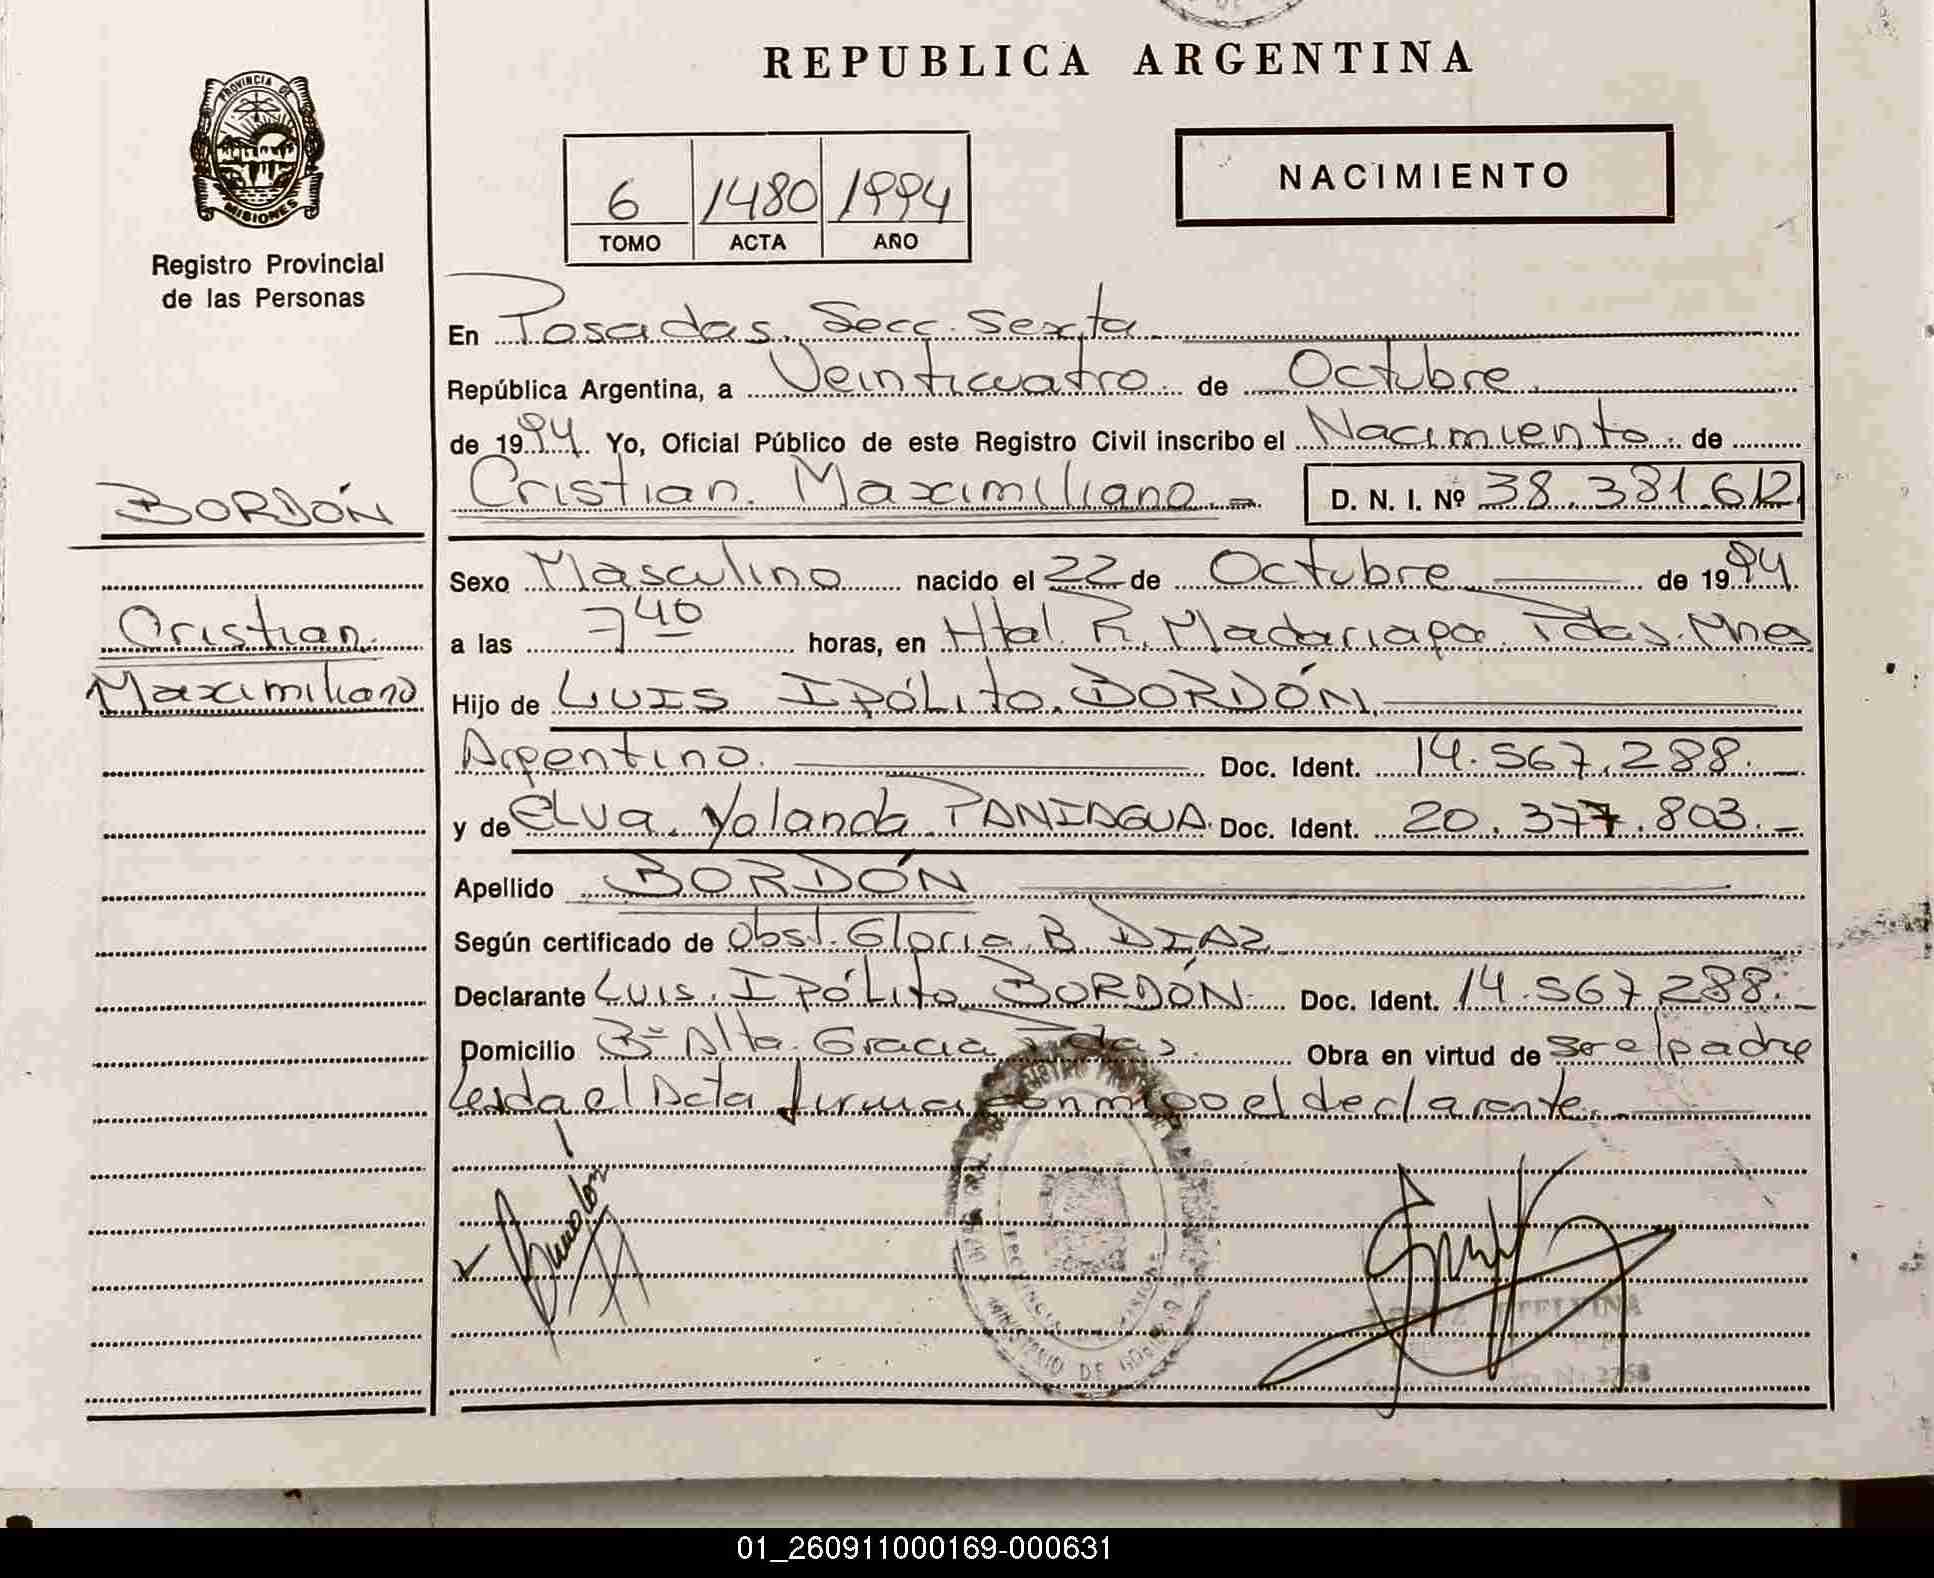 REPUBLICA ARGENTINA
PROVINCIA DE
MISIONES
Registro Provincial
de las Personas
6 1480 1994
TOMO ACTA AÑO
NACIMIENTO
En Posadas. Secc. Sexta
República Argentina, a Veinticuatro de Octubre
de 1994. Yo, Oficial Público de este Registro Civil inscribo el Nacimiento de
Cristian Maximiliano D. N. I. Nº 38.381.612
BORDÓN
Cristian
Maximiliano
Sexo Masculino nacido el 22 de Octubre de 1994
a las 7 40 horas, en Htal. R. Madariaga Pdas. Mnes
Hijo de LUIS IPÓLito BORDÓN
Argentino. Doc. Ident. 14.567.288.
y de ELVA Yolanda PANIAGUA. Doc. Ident. 20.377.803.
Apellido BORDÓN
Según certificado de Obst. Gloria B. DIAZ
Declarante LUIS IPÓLito BORDÓN Doc. Ident. 14.567.288.
Domicilio Bº Alta Gracia Pdas. Obra en virtud de ser el padre
Leida el Acta firma conmigo el declarante.
MINISTERIO DE
2768
01_260911000169-000631